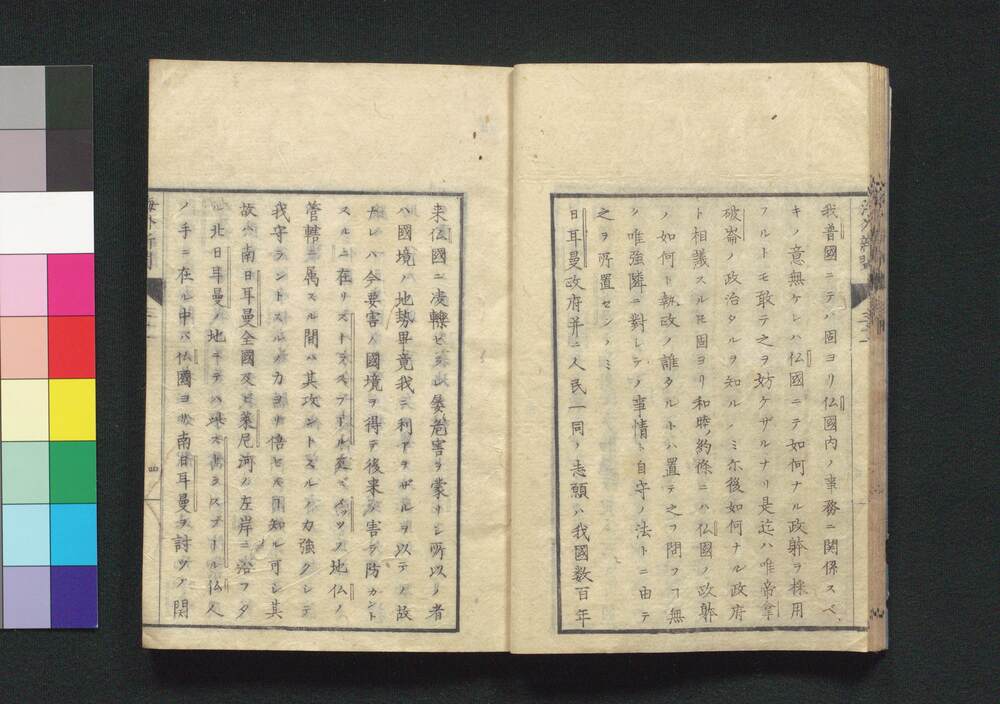 我普國ニテハ固ヨリ仏國内ノ事務ニ関係スベ
キノ意無ケレハ仏國ニテ如何ナル政躰ヲ採用
フルトモ敢テ之ヲ妨ケザルナリ是迄ハ唯帝拿
破崙ノ政治タルヲ知ルノミ尓後如何ナル政府
ト相議スルモ固ヨリ和睦ノ約條ニハ仏國ノ政躰
ノ如何ト執政ノ誰タルトハ置テ之ヲ問フヿ無
ク唯強隣ニ對シテノ事情ト自守ノ法トニ由テ
之ヲ所置センノミ
日耳曼政府并ニ人民一同ノ志願ハ我國数百年
来仏國ニ凌轢セラレ屡危害ヲ蒙リシ所以ノ者
ハ國境ノ地勢畢竟我ニ利アラザルヲ以テノ故
ナレハ今要害ノ國境ヲ得テ後来ノ害ヲ防カント
スルニ在リストラスブールル及ベイッツノ地仏ノ
管轄ニ属スル間ハ其攻ントスルノ力強クシテ
我守ラントスルノ力ヨリ倍セルヿ知ル可シ其
故ハ南日耳曼全國及ビ萊尼河ノ左岸ニ沿フタ
ル北日耳曼ノ地ニテハストラスブールル仏人
ノ手ニ在ル中ハ仏國ヨリ南日耳曼ヲ討ツノ関
海外新聞
四